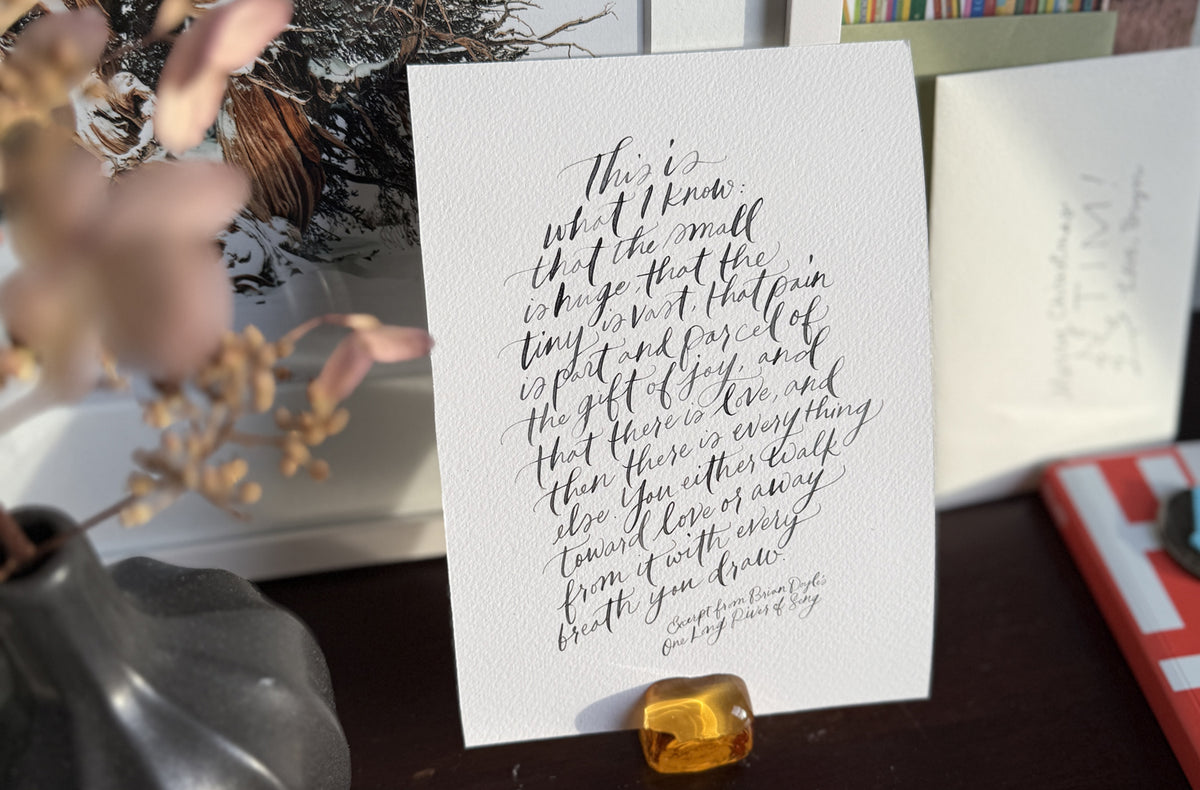 This is
what I know:
that the small
is huge, that the
tiny is vast, that pain
is part and parcel of
the gift of joy, and
that there is love, and
then there is everything
else. You either walk
toward love or away
from it with every
breath you draw.
Excerpt from Brian Doyle's
One Long River of Song
Merry Christmas
TIM!